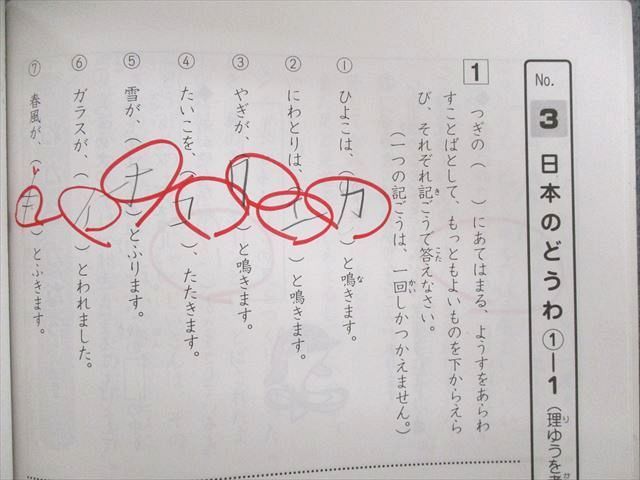 No. 3 日本のどうわ①―1（理りゆうを
1
つぎの（　）にあてはまる、ようすをあらわ
すことばとして、もっともよいものを下からえら
び、それぞれ記きごうで答こたえなさい。
（一つの記ごうは、一回かいしかつかえません。）
① ひよこは、（カ）と鳴なきます。
② にわとりは、（エ）と鳴きます。
③ やぎが、（ク）と鳴きます。
④ たいこを、（ユ）、たたきます。
⑤ 雪が、（オ）とふります。
⑥ ガラスが、（イ）とわれました。
⑦ 春風が、（キ）とふきます。